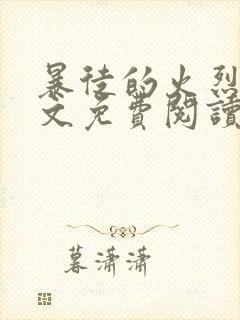 暴徒的火烈
文免費閱讀
暮瀟瀟